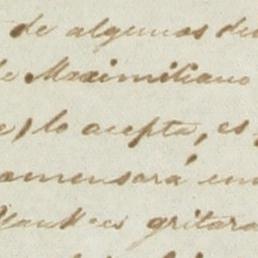 de algunos de
de Maximiliano
lo acepta, es
comensará un
Yankees gritara